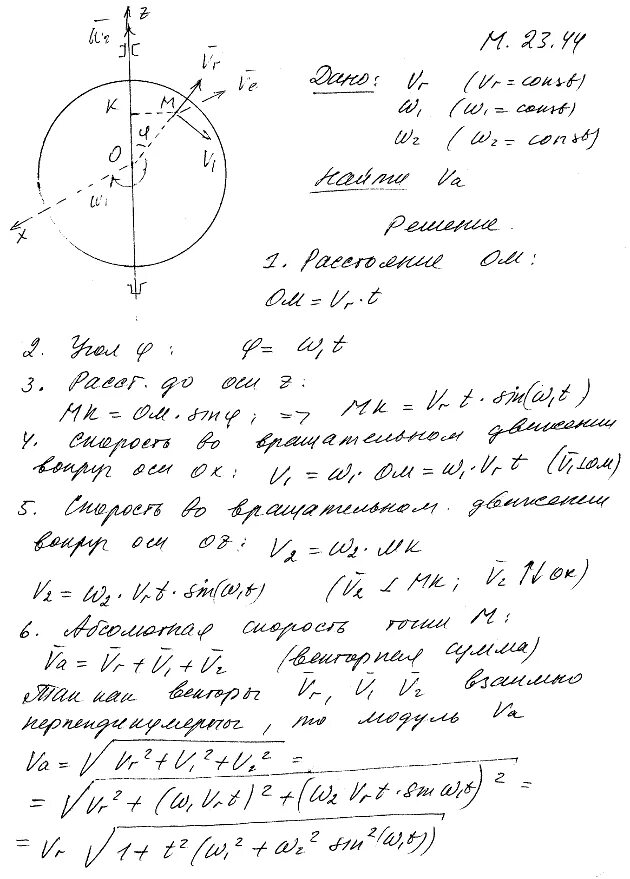 z
ω̄₂
V̄r
V̄e
K
M
φ
O
V̄₁
ω₁
x
М. 23.44
Дано: Vr (Vr = const)
ω₁ (ω₁ = const)
ω₂ (ω₂ = const)
Найти Va
Решение.
1. Расстояние OM:
OM = Vr · t
2. Угол φ: φ = ω₁t
3. Расст. до оси z:
MK = OM · sinφ; => MK = Vr t · sin(ω₁t)
4. Скорость во вращательном движении
вокруг оси OX: V₁ = ω₁ · OM = ω₁ · Vr t (V̄₁⊥OM)
5. Скорость во вращательном. движении
вокруг оси OZ: V₂ = ω₂ · MK
V₂ = ω₂ · Vr t · sin(ω₁t) (V̄₂ ⊥ MK; V̄₂ ↑↓ OX)
6. Абсолютная скорость точки M:
V̄a = V̄r + V̄₁ + V̄₂ (векторная сумма)
Так как векторы V̄r, V̄₁ V̄₂ взаимно
перпендикулярны, то модуль Va
Va = √(Vr² + V₁² + V₂²) =
= √(Vr² + (ω₁ Vr t)² + (ω₂ Vr t · sin ω₁t)²) =
= Vr √(1 + t² (ω₁² + ω₂² sin²(ω₁t)))